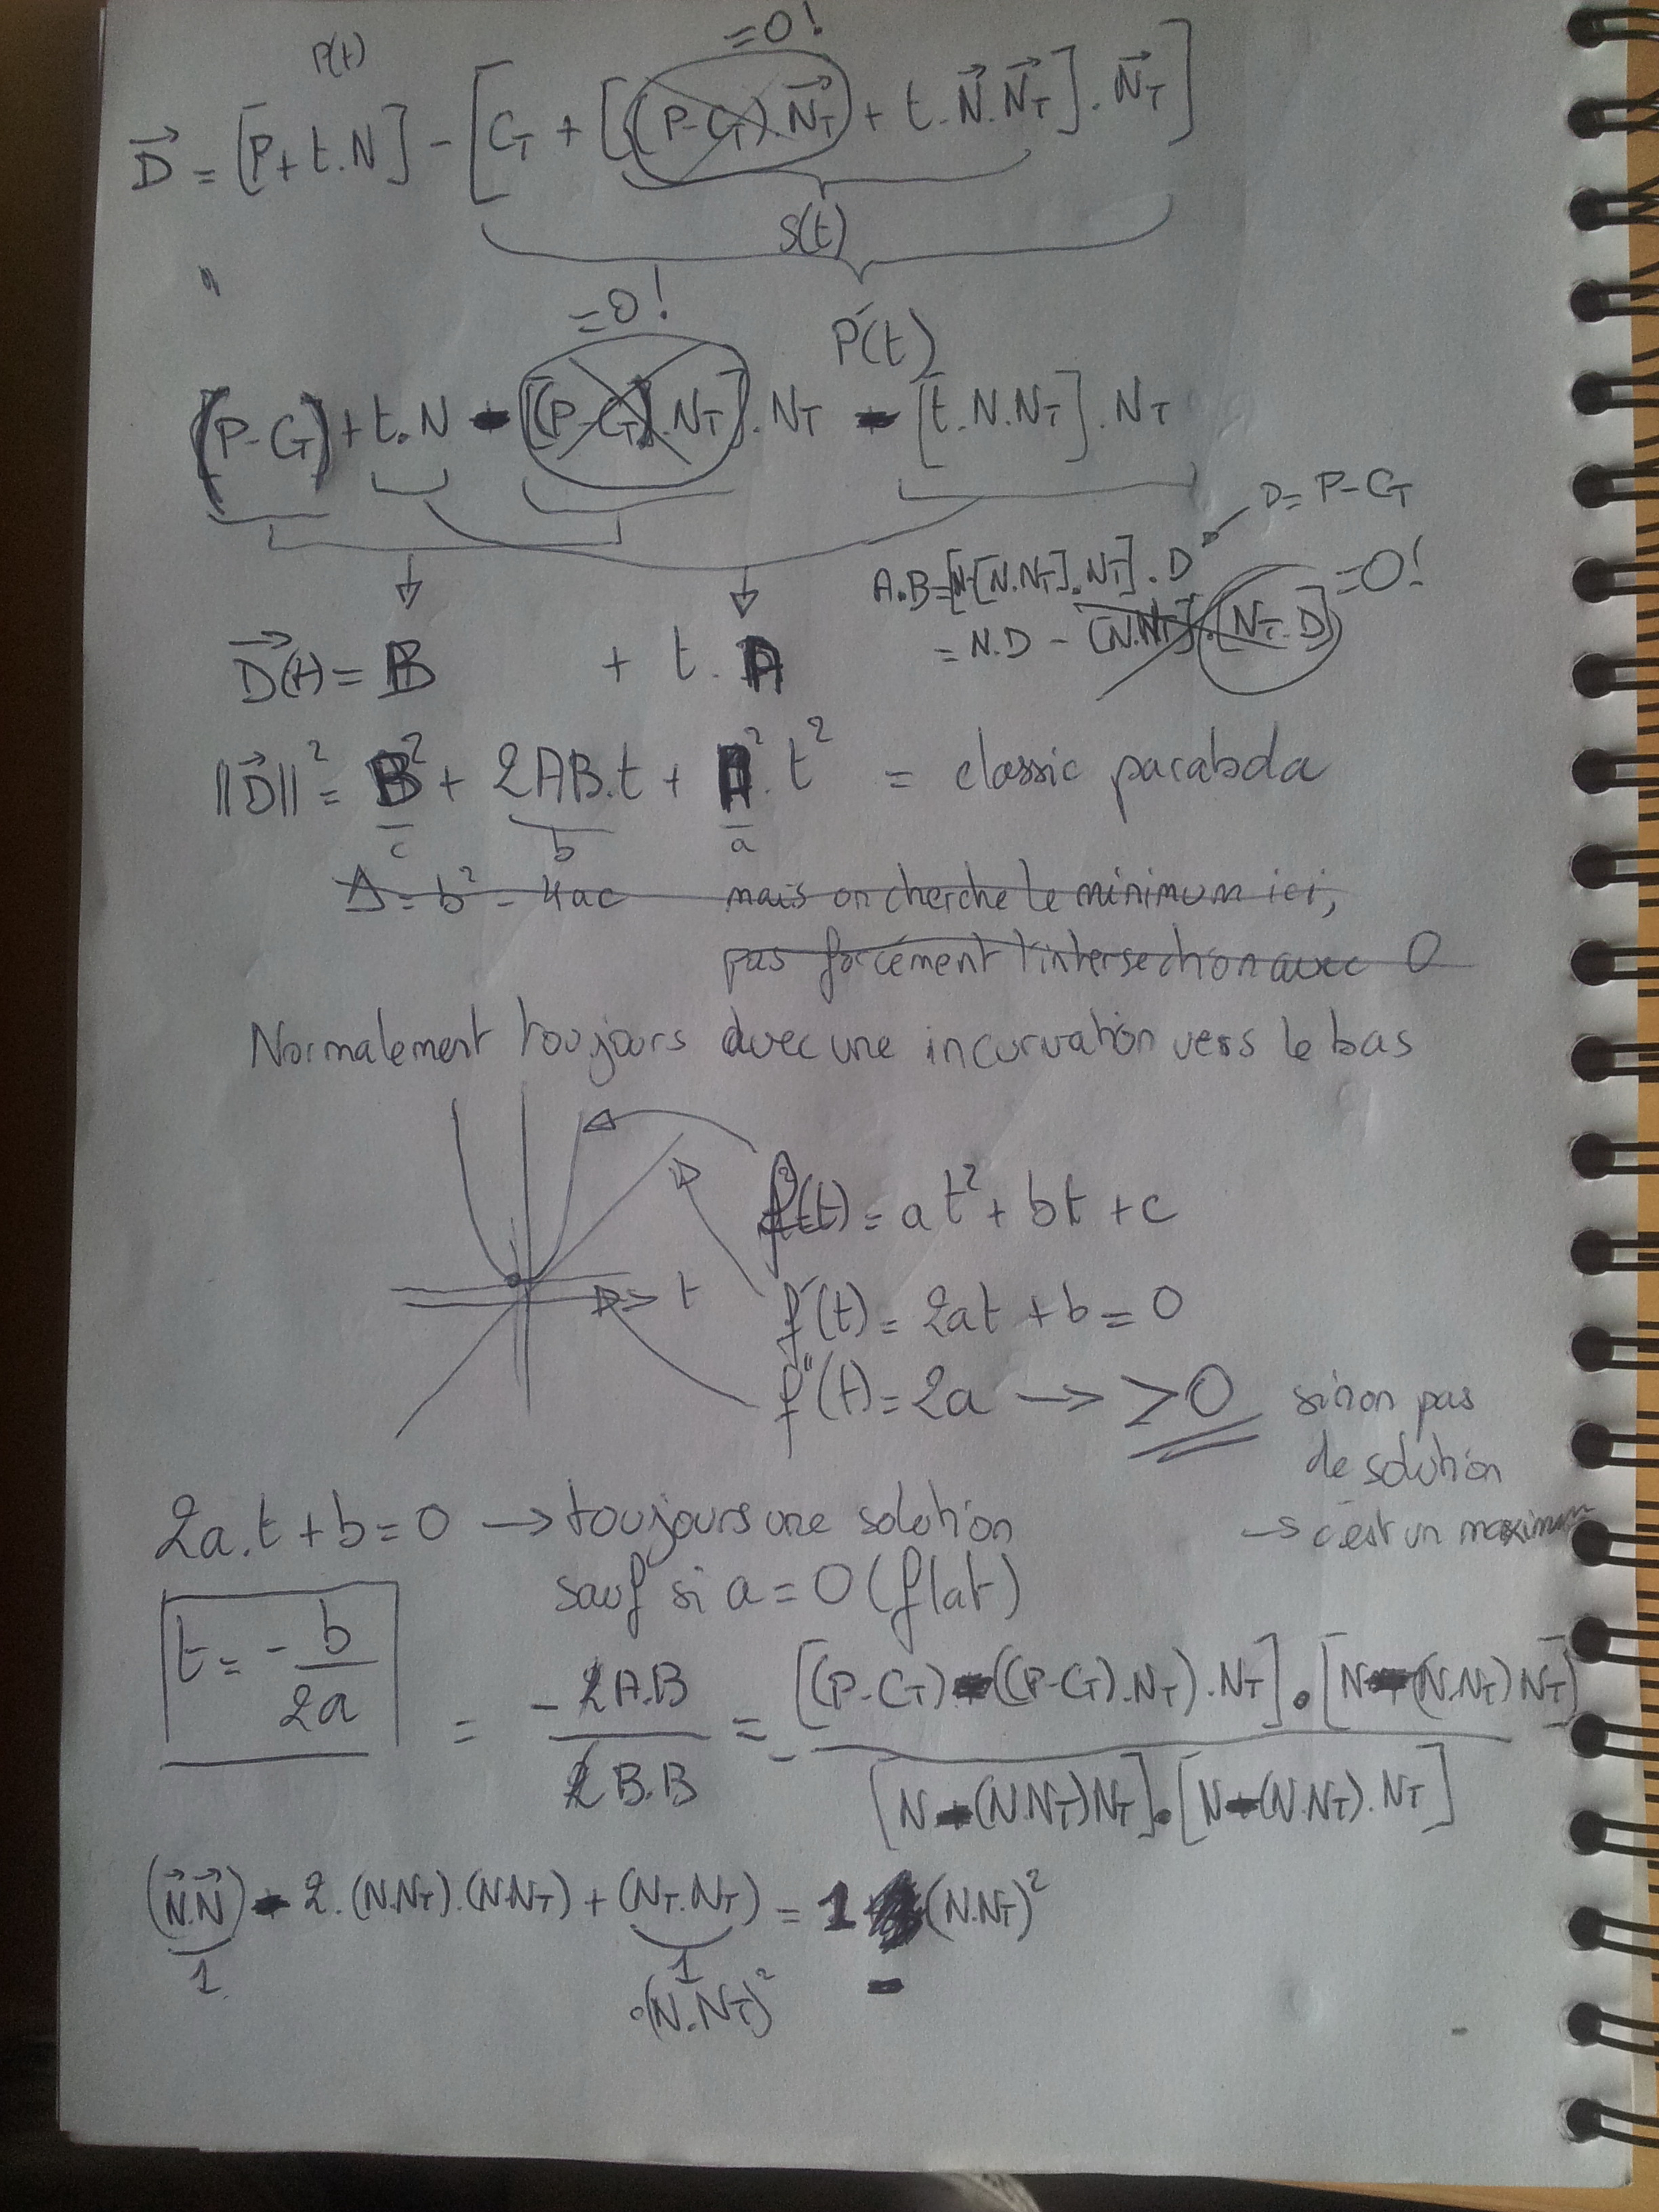 P(t) =0!
D⃗ = [P + t.N] - [C_T + [((P-C_T).N⃗_T) + t.N⃗.N⃗_T].N⃗_T]
S(t)
"
=0! P'(t)
(P-C_T) + t.N - [(P-C_T).N_T].N_T - [t.N.N_T].N_T
D=P-C_T
A.B=[N-[N.N_T].N_T].D =0!
= N.D - [N.N_T].[N_T.D]
D⃗(t) = B + t.A
||D⃗||² = B² + 2AB.t + A².t² = classic parabola
c b a
Δ = b² - 4ac mais on cherche le minimum ici,
pas forcément l'intersection avec 0
Normalement toujours avec une incurvation vers le bas
f(t) = at² + bt + c
t f'(t) = 2at + b = 0
f"(t) = 2a → >0 sinon pas
de solution
→ c'est un maximum
2a.t + b = 0 → toujours une solution
sauf si a = 0 (flat)
t = - b/2a = -2A.B/2B.B = - [(P-C_T)-((P-C_T).N_T).N_T].[N-(N.N_T)N_T] / [N-(N.N_T)N_T].[N-(N.N_T).N_T]
(N⃗.N⃗) - 2.(N.N_T).(N.N_T) + (N_T.N_T) = 1 - (N.N_T)²
1 1
.(N.N_T)²